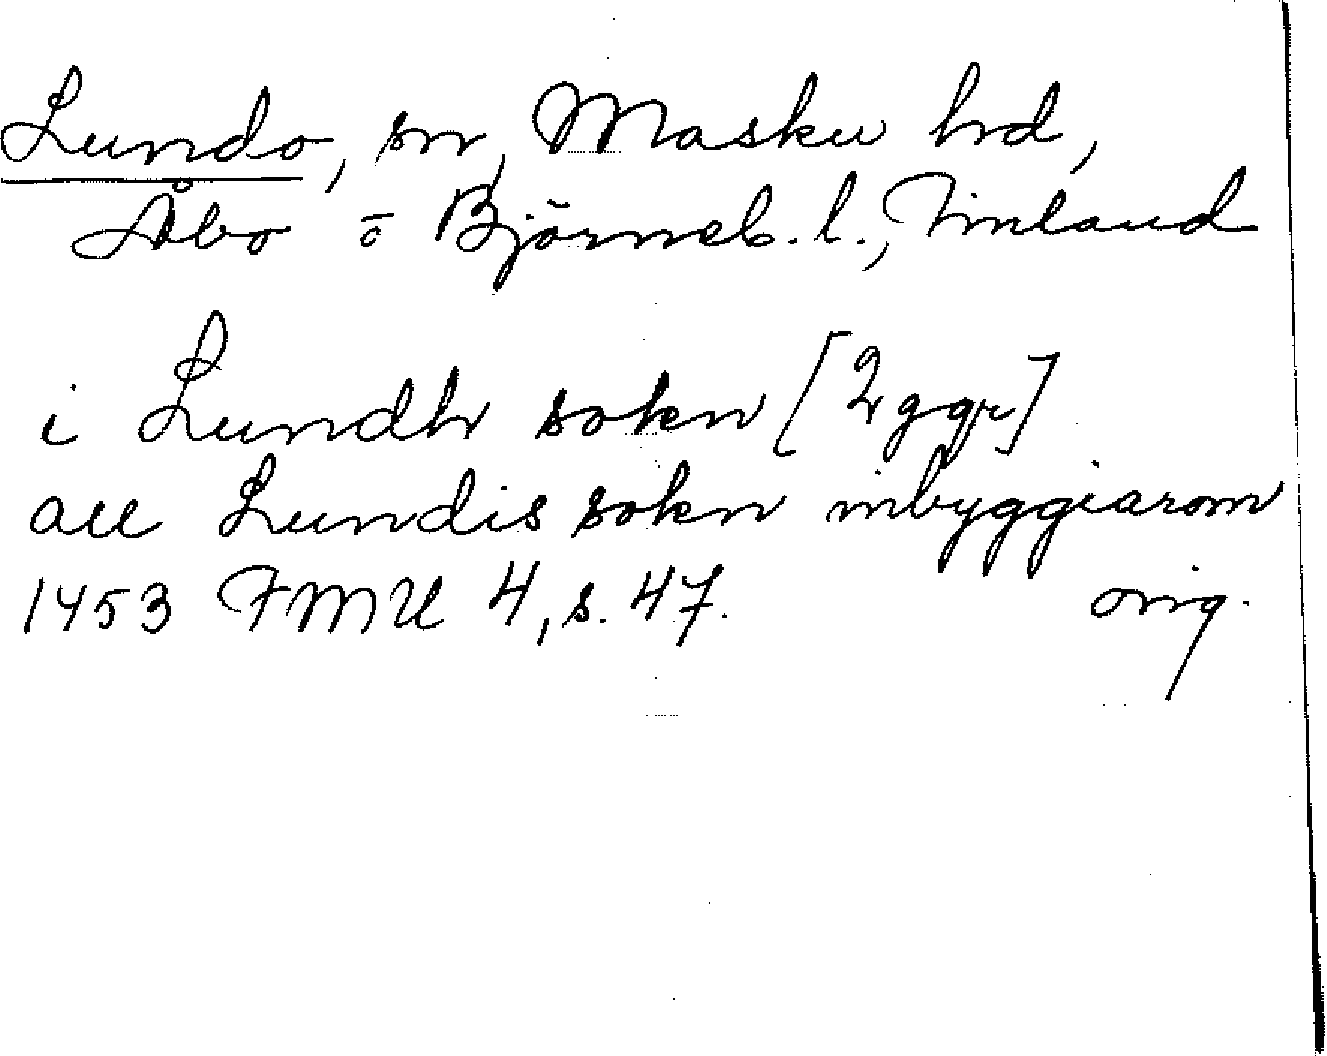 Lundo, sn, Masku hd,
Åbo o Björneb. l., Finland
i Lundh sokn [2 ggr]
all Lundis sokn inbyggiarom
1453 FMU 4, s. 47. orig.